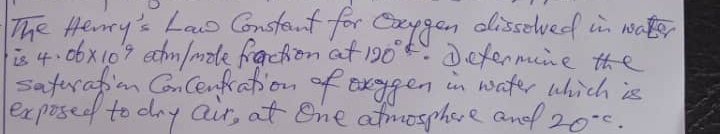 The Henry's Law Constant for Oxygen dissolved in water
is 4.06x10⁹ atm/mole fraction at 120°c. Determine the
saturation Concentration of oxygen in water which is
exposed to dry air, at One atmosphere and 20°c.